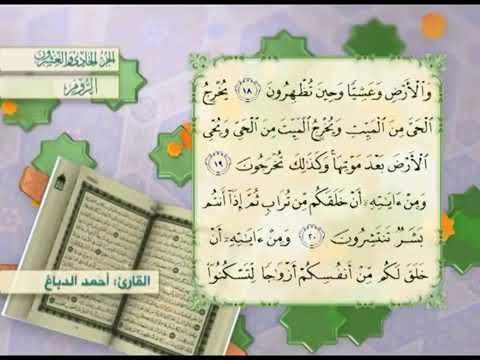 الجزء الحادي والعشرون
الروم
وَالْأَرْضِ وَعَشِيًّا وَحِينَ تُظْهِرُونَ ١٨ يُخْرِجُ
الْحَيَّ مِنَ الْمَيِّتِ وَيُخْرِجُ الْمَيِّتَ مِنَ الْحَيِّ وَيُحْيِ
الْأَرْضَ بَعْدَ مَوْتِهَا وَكَذَلِكَ تُخْرَجُونَ ١٩
وَمِنْ ءَايَتِهِ أَنْ خَلَقَكُم مِّن تُرَابٍ ثُمَّ إِذَا أَنتُم
بَشَرٌ تَنتَشِرُونَ ٢٠ وَمِنْ ءَايَتِهِ أَنْ
خَلَقَ لَكُم مِّنْ أَنفُسِكُمْ أَزْوَاجًا لِّتَسْكُنُوا
القارئ: أحمد الدباغ